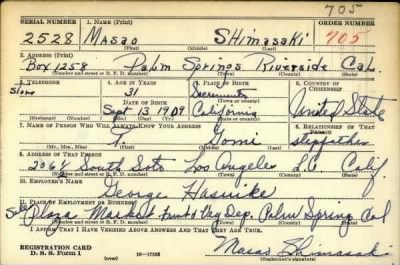 705
SERIAL NUMBER 1. NAME (Print) ORDER NUMBER
2528 Masao Shimasaki 705
(First) (Middle) (Last)
2. ADDRESS (Print)
Box 1258 Palm Springs Riverside Cal.
(Number and street or R. F. D. number) (Town) (County) (State)
3. TELEPHONE 4. AGE IN YEARS 5. PLACE OF BIRTH 6. COUNTRY OF CITIZENSHIP
31 Sacramento
DATE OF BIRTH (Town or county)
Sept 13 1909 California United State
(Exchange) (Number) (Mo.) (Day) (Yr.) (State or country)
7. NAME OF PERSON WHO WILL ALWAYS KNOW YOUR ADDRESS 8. RELATIONSHIP OF THAT PERSON
T. stepfather
(Mr., Mrs., Miss) (First) (Middle) (Last)
9. ADDRESS OF THAT PERSON
South Soto Los Angeles L.A. Calif.
(Number and street or R. F. D. number) (Town) (County) (State)
10. EMPLOYER'S NAME
George
11. PLACE OF EMPLOYMENT OR BUSINESS
Plaza Market Fruit & Veg Dep. Palm Spring Cal
(Number and street or R. F. D. number) (Town) (County) (State)
I AFFIRM THAT I HAVE VERIFIED ABOVE ANSWERS AND THAT THEY ARE TRUE.
REGISTRATION CARD
D. S. S. Form 1 Masao Shimasaki
(Registrant's signature)